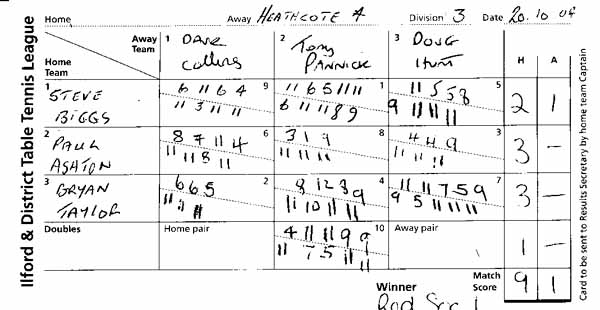 Ilford & District Table Tennis League
Home Away HEATHCOTE A Division 3 Date 20.10.09
Away Team 1 DAVE COLLINS 2 TONY PANNICK 3 DOUG HUNT H A
Home Team
1 STEVE BIGGS 9 6 11 6 4 11 3 11 11 1 11 6 5 11 11 6 11 11 8 9 5 11 5 5 8 9 11 11 11 2 1
2 PAUL ASHTON 6 8 7 11 4 11 11 8 11 8 3 1 9 11 11 11 3 4 4 9 11 11 11 3 —
3 BRYAN TAYLOR 2 6 6 5 11 11 11 4 8 12 8 9 11 10 11 11 7 11 11 7 5 9 9 5 11 11 11 3 —
Doubles Home pair 10 4 11 11 9 9 11 7 5 11 11 Away pair 1 —
Winner Match Score 9 1
Card to be sent to Results Secretary by home team Captain